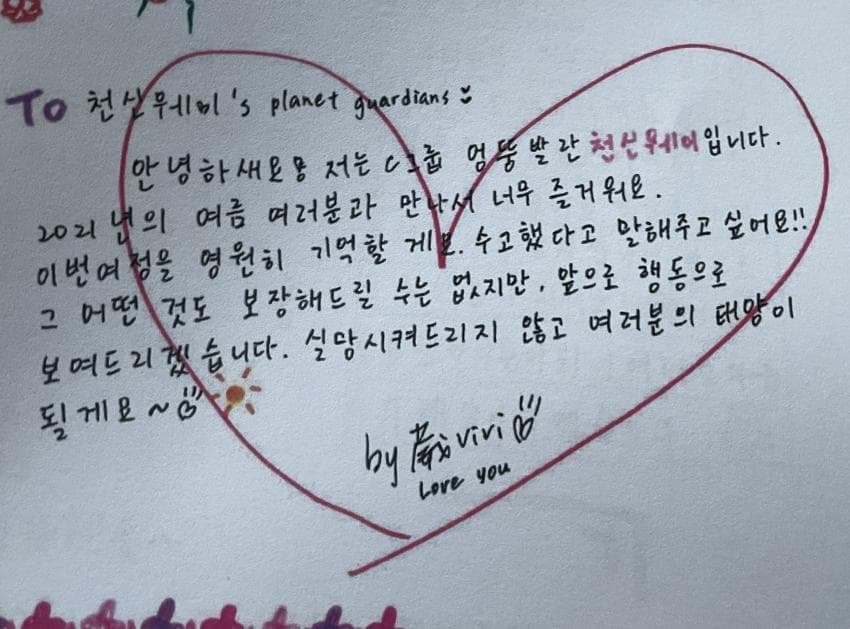 To 천신웨이's planet guardians
안녕하새요용 저는 C그룹 엉뚱발랄 천신웨이입니다.
2021년의 여름 여러분과 만나서 너무 즐거워요.
이번여정을 영원히 기억할 게요. 수고했다고 말해주고 싶어요!!
그 어떤 것도 보장해드릴 수는 없지만, 앞으로 행동으로
보여드리겠습니다. 실망시켜드리지 않고 여러분의 태양이
될게요~
by vivi
Love you